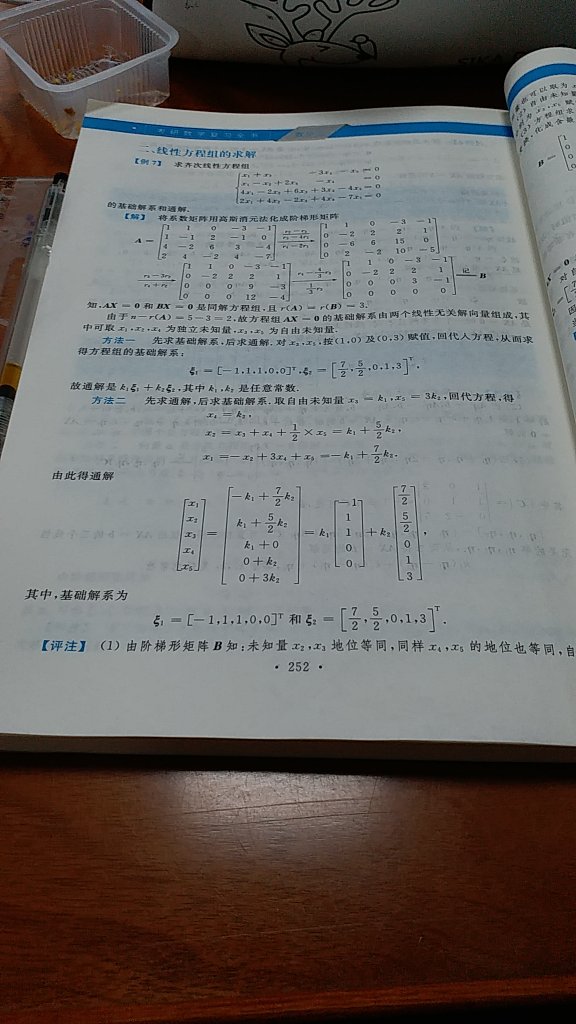 考研数学复习全书
二、线性方程组的求解
【例7】 求齐次线性方程组
x₁ + x₂ - 3x₄ - x₅ = 0
x₁ - x₂ + 2x₃ - x₄ = 0
4x₁ - 2x₂ + 6x₃ + 3x₄ - 4x₅ = 0
2x₁ + 4x₂ - 2x₃ + 4x₄ - 7x₅ = 0
的基础解系和通解.
【解】 将系数矩阵用高斯消元法化成阶梯形矩阵
A = [1 1 0 -3 -1; 1 -1 2 -1 0; 4 -2 6 3 -4; 2 4 -2 4 -7] → [1 1 0 -3 -1; 0 -2 2 2 1; 0 -6 6 15 0; 0 2 -2 10 -5]
→ [1 1 0 -3 -1; 0 -2 2 2 1; 0 0 0 9 -3; 0 0 0 12 -4] → [1 1 0 -3 -1; 0 -2 2 2 1; 0 0 0 3 -1; 0 0 0 0 0] 记 B
知,AX = 0 和 BX = 0 是同解方程组,且 r(A) = r(B) = 3.
由于 n - r(A) = 5 - 3 = 2,故方程组 AX = 0 的基础解系由两个线性无关解向量组成,其
中可取 x₁,x₂,x₄ 为独立未知量,x₃,x₅ 为自由未知量.
方法一 先求基础解系,后求通解.对 x₃,x₅,按(1,0)及(0,3)赋值,回代入方程,从而求
得方程组的基础解系:
ξ₁ = [-1,1,1,0,0]ᵀ,ξ₂ = [7/2,5/2,0,1,3]ᵀ,
故通解是 k₁ξ₁ + k₂ξ₂,其中 k₁,k₂ 是任意常数.
方法二 先求通解,后求基础解系.取自由未知量 x₃ = k₁,x₅ = 3k₂,回代方程,得
x₄ = k₂,
x₂ = x₃ + x₄ + 1/2 × x₅ = k₁ + 5/2 k₂,
x₁ = -x₂ + 3x₄ + x₅ = -k₁ + 7/2 k₂.
由此得通解
[x₁; x₂; x₃; x₄; x₅] = [-k₁ + 7/2 k₂; k₁ + 5/2 k₂; k₁ + 0; 0 + k₂; 0 + 3k₂] = k₁[-1; 1; 1; 0; 0] + k₂[7/2; 5/2; 0; 1; 3],
其中,基础解系为
ξ₁ = [-1,1,1,0,0]ᵀ 和 ξ₂ = [7/2,5/2,0,1,3]ᵀ.
【评注】 (1) 由阶梯形矩阵 B 知:未知量 x₂,x₃ 地位等同,同样 x₄,x₅ 的地位也等同,自
· 252 ·